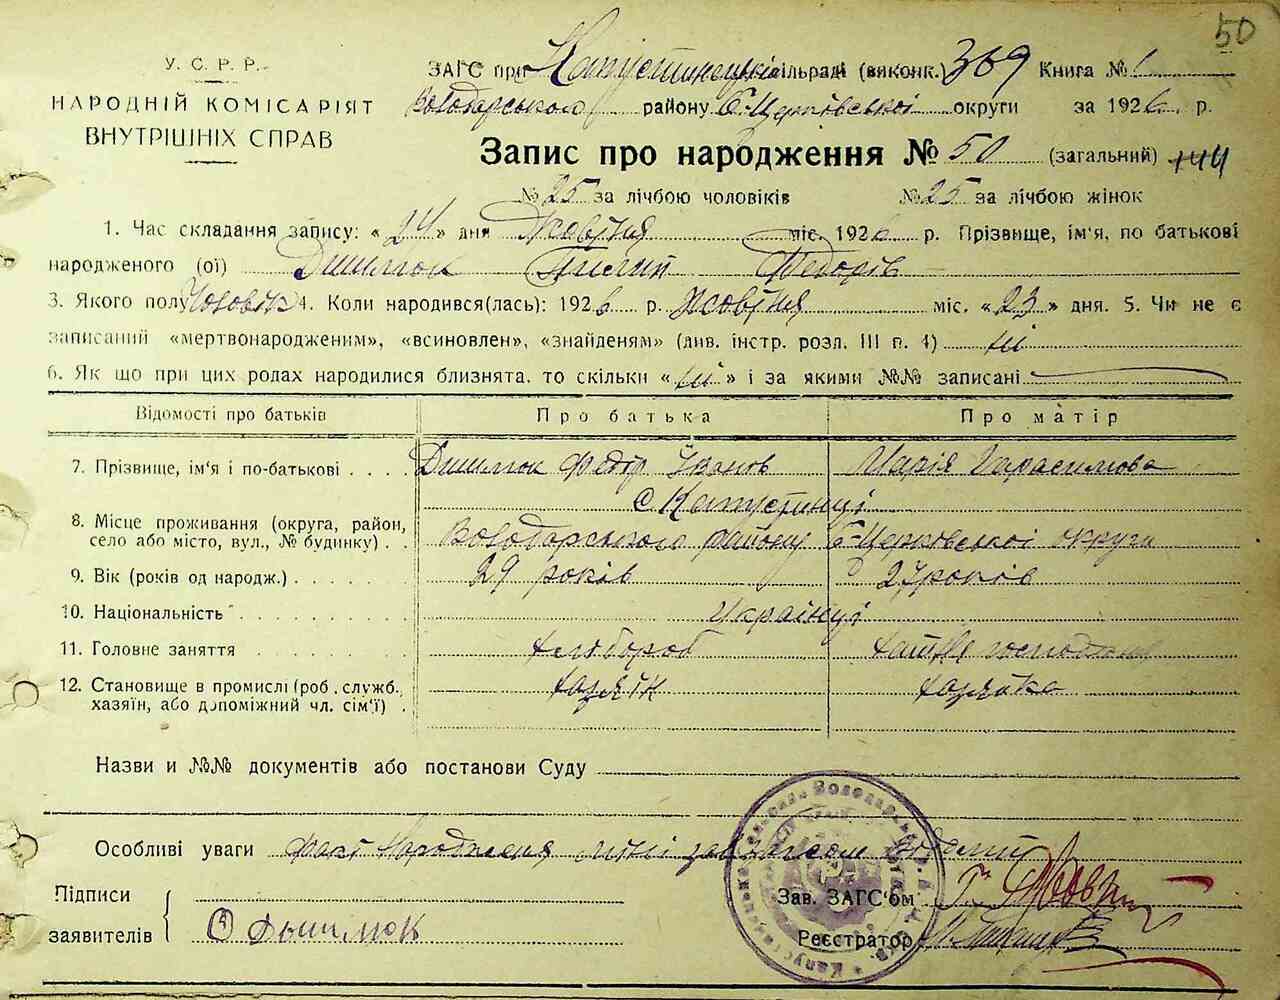 50
У. С. Р. Р.
НАРОДНІЙ КОМІСАРІЯТ
ВНУТРІШНІХ СПРАВ
ЗАГС при Капустинецькій сільраді (виконк.) 369 Книга № 1
Володарського району Б-Церківської округи за 1926 р.
Запис про народження № 50 (загальний) 144
№ 25 за лічбою чоловіків № 25 за лічбою жінок
1. Час складання запису: «24» дня Жовтня міс. 1926 р. Прізвище, ім'я, по батькові
народженого (ої) Дишлюк Пилип Федорів
3. Якого полу Чоловік 4. Коли народився(лась): 1926 р. Жовтня міс. «23» дня. 5. Чи не є
записаний «мертвонародженим», «всиновлен», «знайденям» (див. інстр. розл. III п. 4) ні
6. Як що при цих родах народилися близнята, то скільки «ні» і за якими №№ записані
Відомості про батьків Про батька Про матір
7. Прізвище, ім'я і по-батькові Дишлюк Федір Іванов Марія Гарасимова
с. Капустинці
8. Місце проживання (округа, район,
село або місто, вул., № будинку) Володарського району Б-Церківської округи
9. Вік (років од народж.) 29 років 27 років
10. Національність Українці
11. Головне заняття хлібороб хатнє господарство
12. Становище в промислі (роб., служб.,
хазяїн, або допоміжний чл. сім'ї) хазяїн хазяйка
Назви и №№ документів або постанови Суду
Особливі уваги факт народження мині
Підписи
заявителів Ф Дышлюк
Зав. ЗАГС'ом
Реєстратор